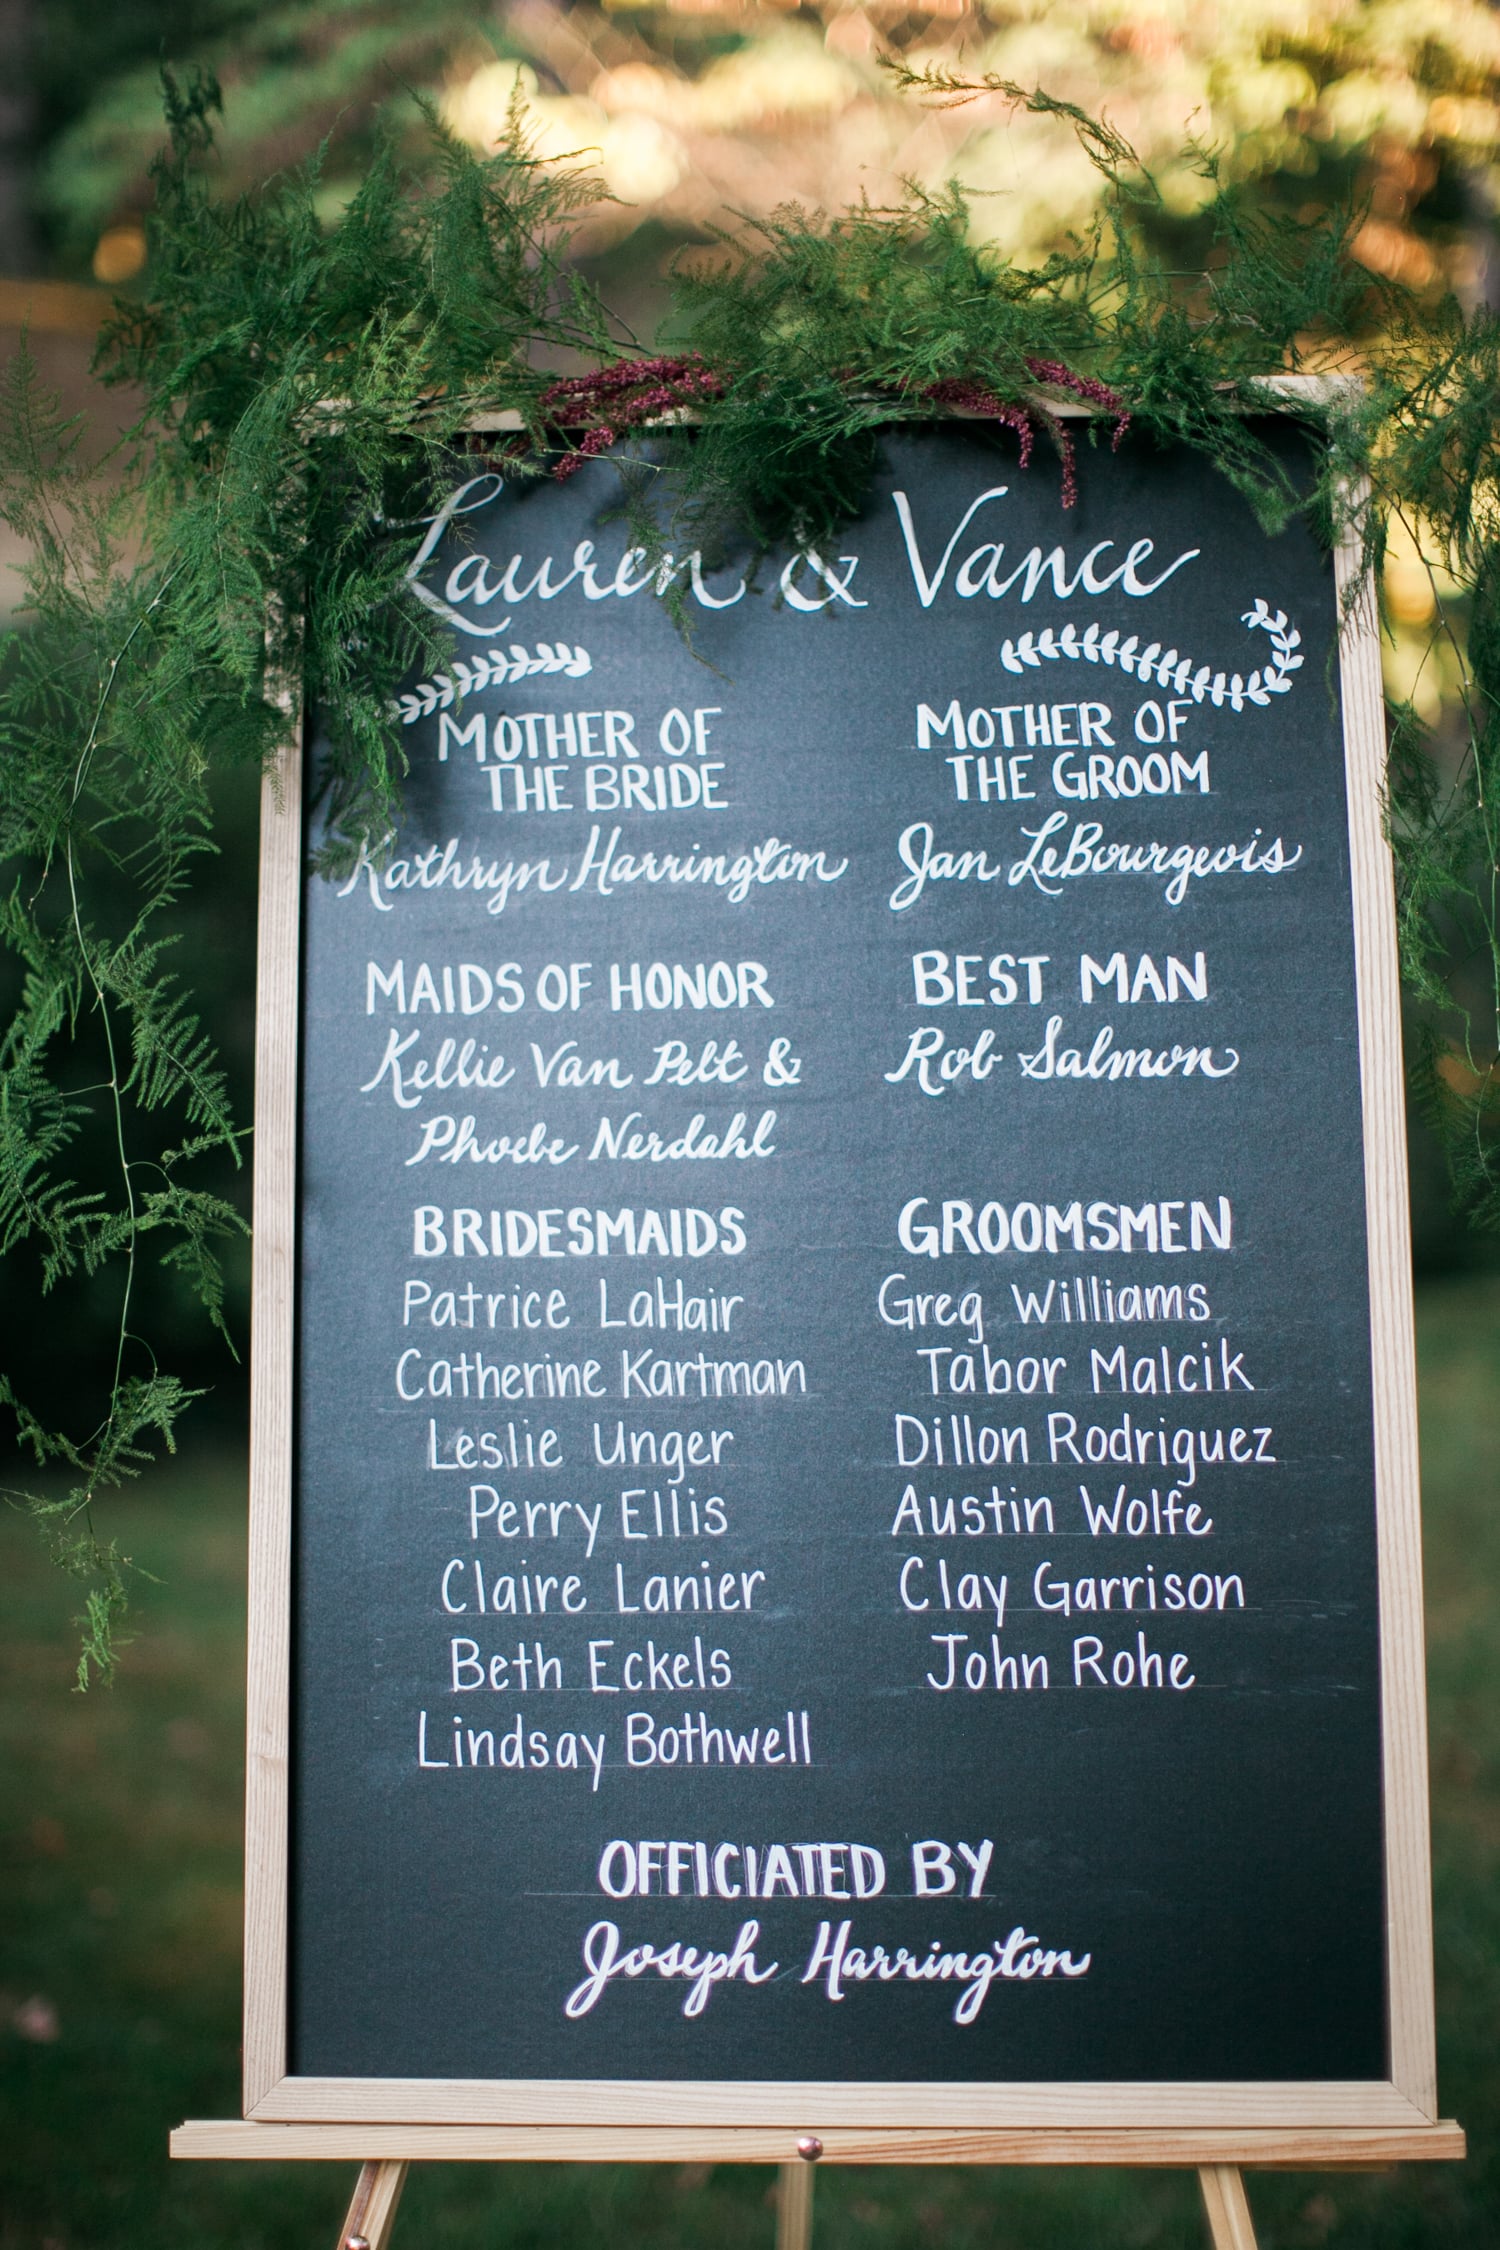 Lauren & Vance
MOTHER OF
THE BRIDE
Kathryn Harrington
MOTHER OF
THE GROOM
Jan LeBourgeois
MAIDS OF HONOR
Kellie Van Pelt &
Phoebe Nerdahl
BEST MAN
Rob Salmon
BRIDESMAIDS
Patrice LaHair
Catherine Kartman
Leslie Unger
Perry Ellis
Claire Lanier
Beth Eckels
Lindsay Bothwell
GROOMSMEN
Greg Williams
Tabor Malcik
Dillon Rodriguez
Austin Wolfe
Clay Garrison
John Rohe
OFFICIATED BY
Joseph Harrington